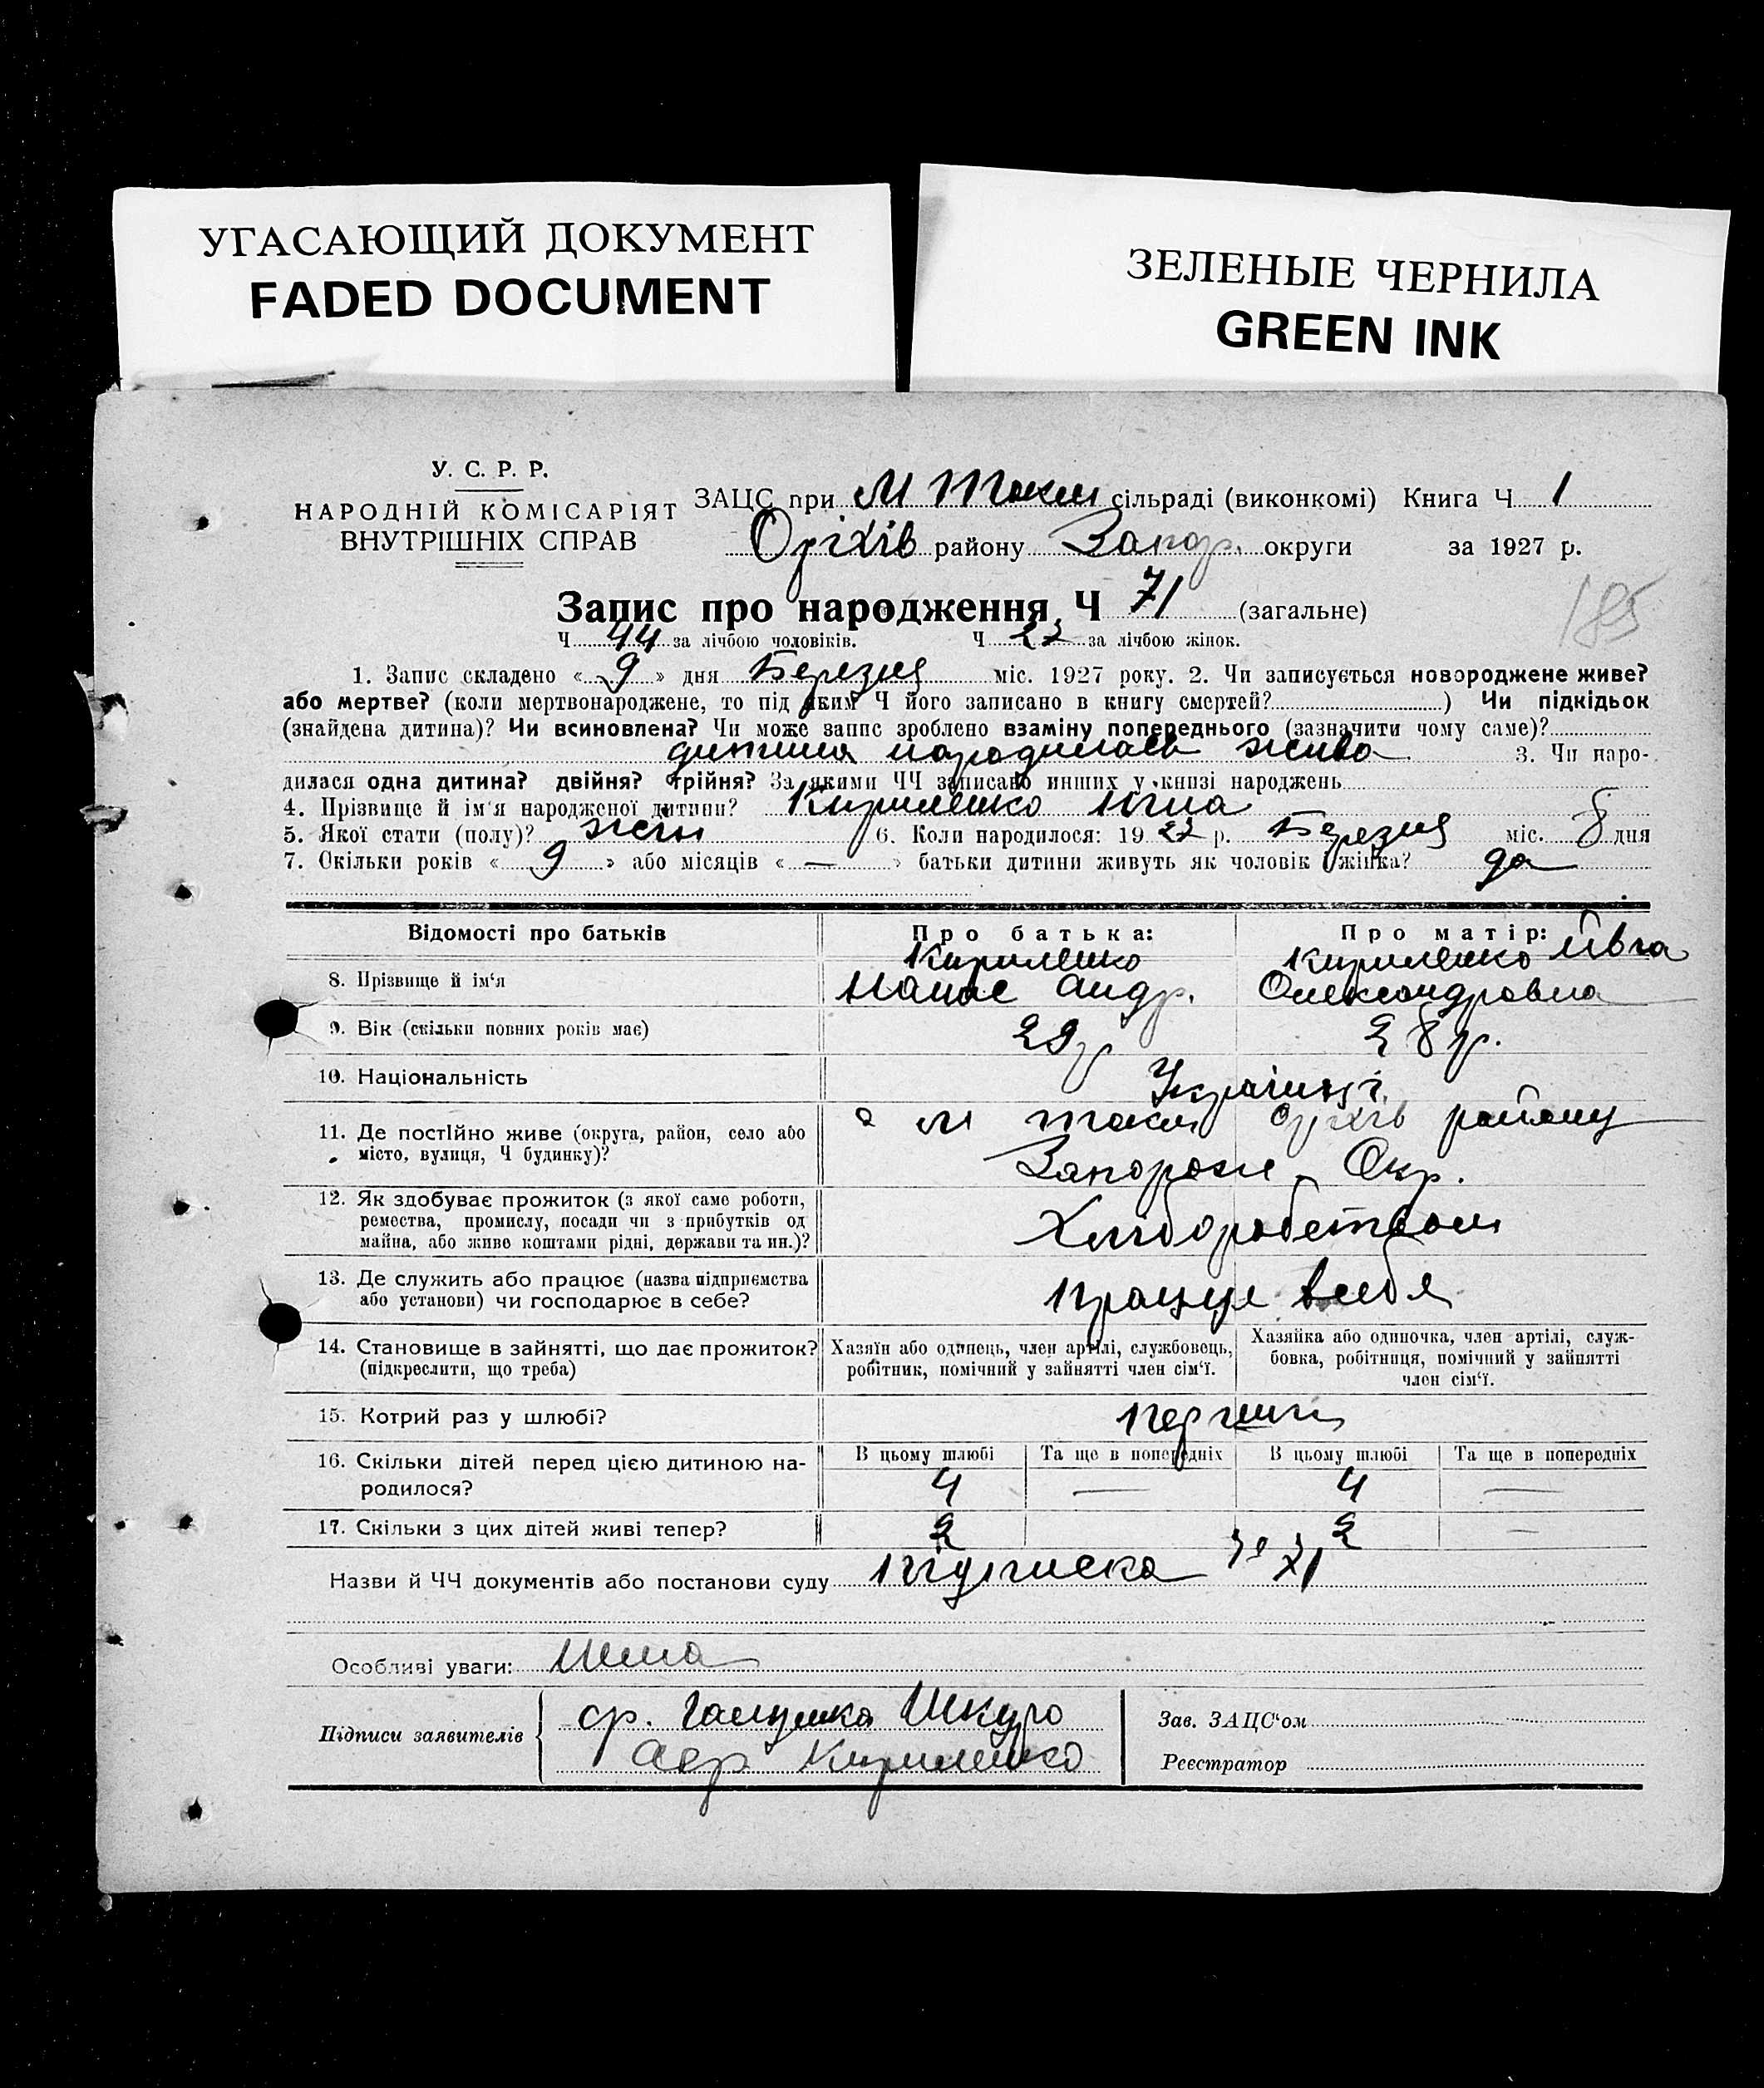 УГАСАЮЩИЙ ДОКУМЕНТ
FADED DOCUMENT
ЗЕЛЕНЫЕ ЧЕРНИЛА
GREEN INK
У. С. Р. Р.
НАРОДНІЙ КОМІСАРІЯТ
ВНУТРІШНІХ СПРАВ
ЗАЦС при М Токм сільраді (виконкомі) Книга Ч 1
Оріхів району Запор. округи за 1927 р.
185
Запис про народження Ч 71 (загальне)
Ч 44 за лічбою чоловіків. Ч 27 за лічбою жінок.
1. Запис складено « 9 » дня Березня міс. 1927 року. 2. Чи записується новороджене живе?
або мертве? (коли мертвонароджене, то під яким Ч його записано в книгу смертей? ) Чи підкідьок
(знайдена дитина)? Чи всиновлена? Чи може запис зроблено взаміну попереднього (зазначити чому саме)?
дитина народилась жива 3. Чи наро-
дилася одна дитина? двійня? трійня? За якими ЧЧ записано инших у книзі народжень
4. Прізвище й ім'я народженої дитини? Кириленко
5. Якої стати (полу)? жін 6. Коли народилося: 19 27 р. Березня міс. 8 дня
7. Скільки років « 9 » або місяців « — » батьки дитини живуть як чоловік і жінка? да
Відомості про батьків
Про батька:
Про матір:
8. Прізвище й ім'я
Кириленко
Панас Андр.
Кириленко Ивга
Олександровна
9. Вік (скільки повних років має)
29 р
28 р.
10. Національність
Українці
11. Де постійно живе (округа, район, село або
місто, вулиця, Ч будинку)?
с М Токм Оріхів району
Запорожс. Окр.
12. Як здобуває прожиток (з якої саме роботи,
ремества, промислу, посади чи з прибутків од
майна, або живе коштами рідні, держави та ин.)?
Хліборобством
13. Де служить або працює (назва підприємства
або установи) чи господарює в себе?
працює в себя
14. Становище в зайнятті, що дає прожиток?
(підкреслити, що треба)
Хазяїн або одинець, член артілі, службовець,
робітник, помічний у зайнятті член сім'ї.
Хазяйка або одиночка, член артілі, служ-
бовка, робітниця, помічний у зайнятті
член сім'ї.
15. Котрий раз у шлюбі?
перший
16. Скільки дітей перед цією дитиною на-
родилося?
В цьому шлюбі
Та ще в попередніх
В цьому шлюбі
Та ще в попередніх
4 — 4 —
17. Скільки з цих дітей живі тепер?
2 2 —
Назви й ЧЧ документів або постанови суду Підписка за 71
Особливі уваги: Нема
Підписи заявителів
ср. Шкуро
Кириленко
Зав. ЗАЦС'ом
Реєстратор